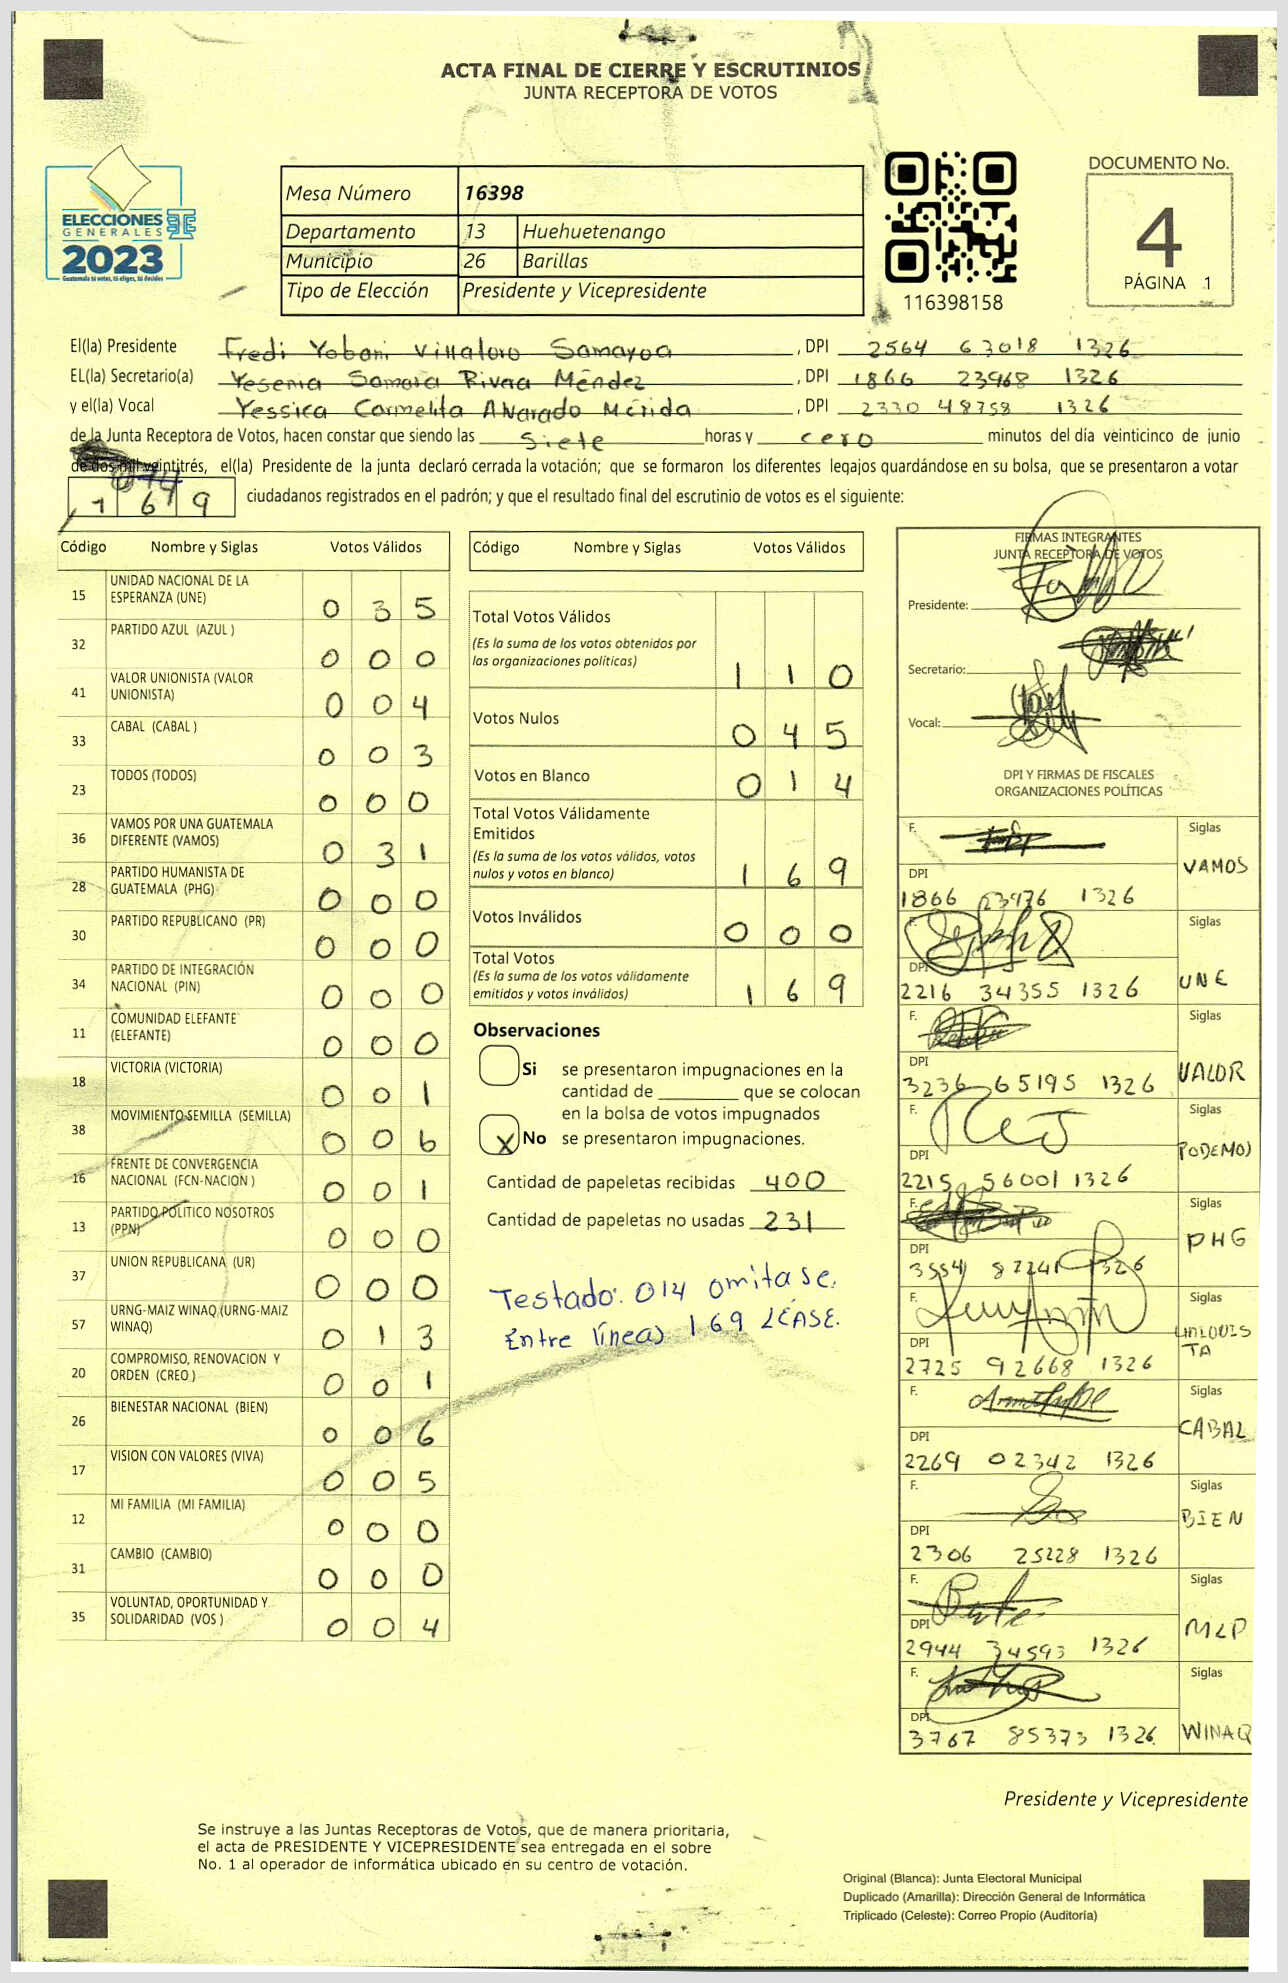 ACTA FINAL DE CIERRE Y ESCRUTINIOS
JUNTA RECEPTORA DE VOTOS
ELECCIONES
GENERALES
2023
Guatemala tú votas, tú eliges, tú decides
Mesa Número 16398
Departamento 13 Huehuetenango
Municipio 26 Barillas
Tipo de Elección Presidente y Vicepresidente
116398158
DOCUMENTO No.
4
PÁGINA 1
El(la) Presidente Fredi Yobani Villatoro Samayoa, DPI 2564 63018 1326
EL(la) Secretario(a) Yesenia Samara Rivera Méndez, DPI 1866 23968 1326
y el(la) Vocal Yessica Carmelita Alvarado Mérida, DPI 2330 48758 1326
de la Junta Receptora de Votos, hacen constar que siendo las siete horas y cero minutos del día veinticinco de junio
de dos mil veintitrés, el(la) Presidente de la junta declaró cerrada la votación; que se formaron los diferentes legajos quardándose en su bolsa, que se presentaron a votar
169 ciudadanos registrados en el padrón; y que el resultado final del escrutinio de votos es el siguiente:
Código Nombre y Siglas Votos Válidos
15 UNIDAD NACIONAL DE LA ESPERANZA (UNE) 0 3 5
32 PARTIDO AZUL (AZUL ) 0 0 0
41 VALOR UNIONISTA (VALOR UNIONISTA) 0 0 4
33 CABAL (CABAL ) 0 0 3
23 TODOS (TODOS) 0 0 0
36 VAMOS POR UNA GUATEMALA DIFERENTE (VAMOS) 0 3 1
28 PARTIDO HUMANISTA DE GUATEMALA (PHG) 0 0 0
30 PARTIDO REPUBLICANO (PR) 0 0 0
34 PARTIDO DE INTEGRACIÓN NACIONAL (PIN) 0 0 0
11 COMUNIDAD ELEFANTE (ELEFANTE) 0 0 0
18 VICTORIA (VICTORIA) 0 0 1
38 MOVIMIENTO SEMILLA (SEMILLA) 0 0 6
16 FRENTE DE CONVERGENCIA NACIONAL (FCN-NACION ) 0 0 1
13 PARTIDO POLITICO NOSOTROS (PPN) 0 0 0
37 UNION REPUBLICANA (UR) 0 0 0
57 URNG-MAIZ WINAQ (URNG-MAIZ WINAQ) 0 1 3
20 COMPROMISO, RENOVACION Y ORDEN (CREO ) 0 0 1
26 BIENESTAR NACIONAL (BIEN) 0 0 6
17 VISION CON VALORES (VIVA) 0 0 5
12 MI FAMILIA (MI FAMILIA) 0 0 0
31 CAMBIO (CAMBIO) 0 0 0
35 VOLUNTAD, OPORTUNIDAD Y SOLIDARIDAD (VOS ) 0 0 4
Código Nombre y Siglas Votos Válidos
Total Votos Válidos
(Es la suma de los votos obtenidos por
las organizaciones políticas) 1 1 0
Votos Nulos 0 4 5
Votos en Blanco 0 1 4
Total Votos Válidamente
Emitidos
(Es la suma de los votos válidos, votos
nulos y votos en blanco) 1 6 9
Votos Inválidos 0 0 0
Total Votos
(Es la suma de los votos válidamente
emitidos y votos inválidos) 1 6 9
Observaciones
Si se presentaron impugnaciones en la
cantidad de ________ que se colocan
en la bolsa de votos impugnados
X No se presentaron impugnaciones.
Cantidad de papeletas recibidas 400
Cantidad de papeletas no usadas 231
Testado: 014 omitase.
Entre lineas 169 LEASE.
FIRMAS INTEGRANTES
JUNTA RECEPTORA DE VOTOS
Presidente:
Secretario:
Vocal:
DPI Y FIRMAS DE FISCALES
ORGANIZACIONES POLÍTICAS
F. Siglas VAMOS
DPI 1866 23976 1326
F. Siglas UNE
DPI 2216 34355 1326
F. Siglas VALOR
DPI 3236 65195 1326
F. Siglas PODEMOS
DPI 2215 56001 1326
F. Siglas PHG
DPI 3554 87241 1326
F. Siglas
DPI 2725 92668 1326
F. Siglas CABAL
DPI 2269 02342 1326
F. Siglas BIEN
DPI 2306 25228 1326
F. Siglas MLP
DPI 2944 34593 1326
F. Siglas WINAQ
DPI 3767 85373 1326
Presidente y Vicepresidente
Se instruye a las Juntas Receptoras de Votos, que de manera prioritaria,
el acta de PRESIDENTE Y VICEPRESIDENTE sea entregada en el sobre
No. 1 al operador de informática ubicado en su centro de votación.
Original (Blanca): Junta Electoral Municipal
Duplicado (Amarilla): Dirección General de Informática
Triplicado (Celeste): Correo Propio (Auditoría)